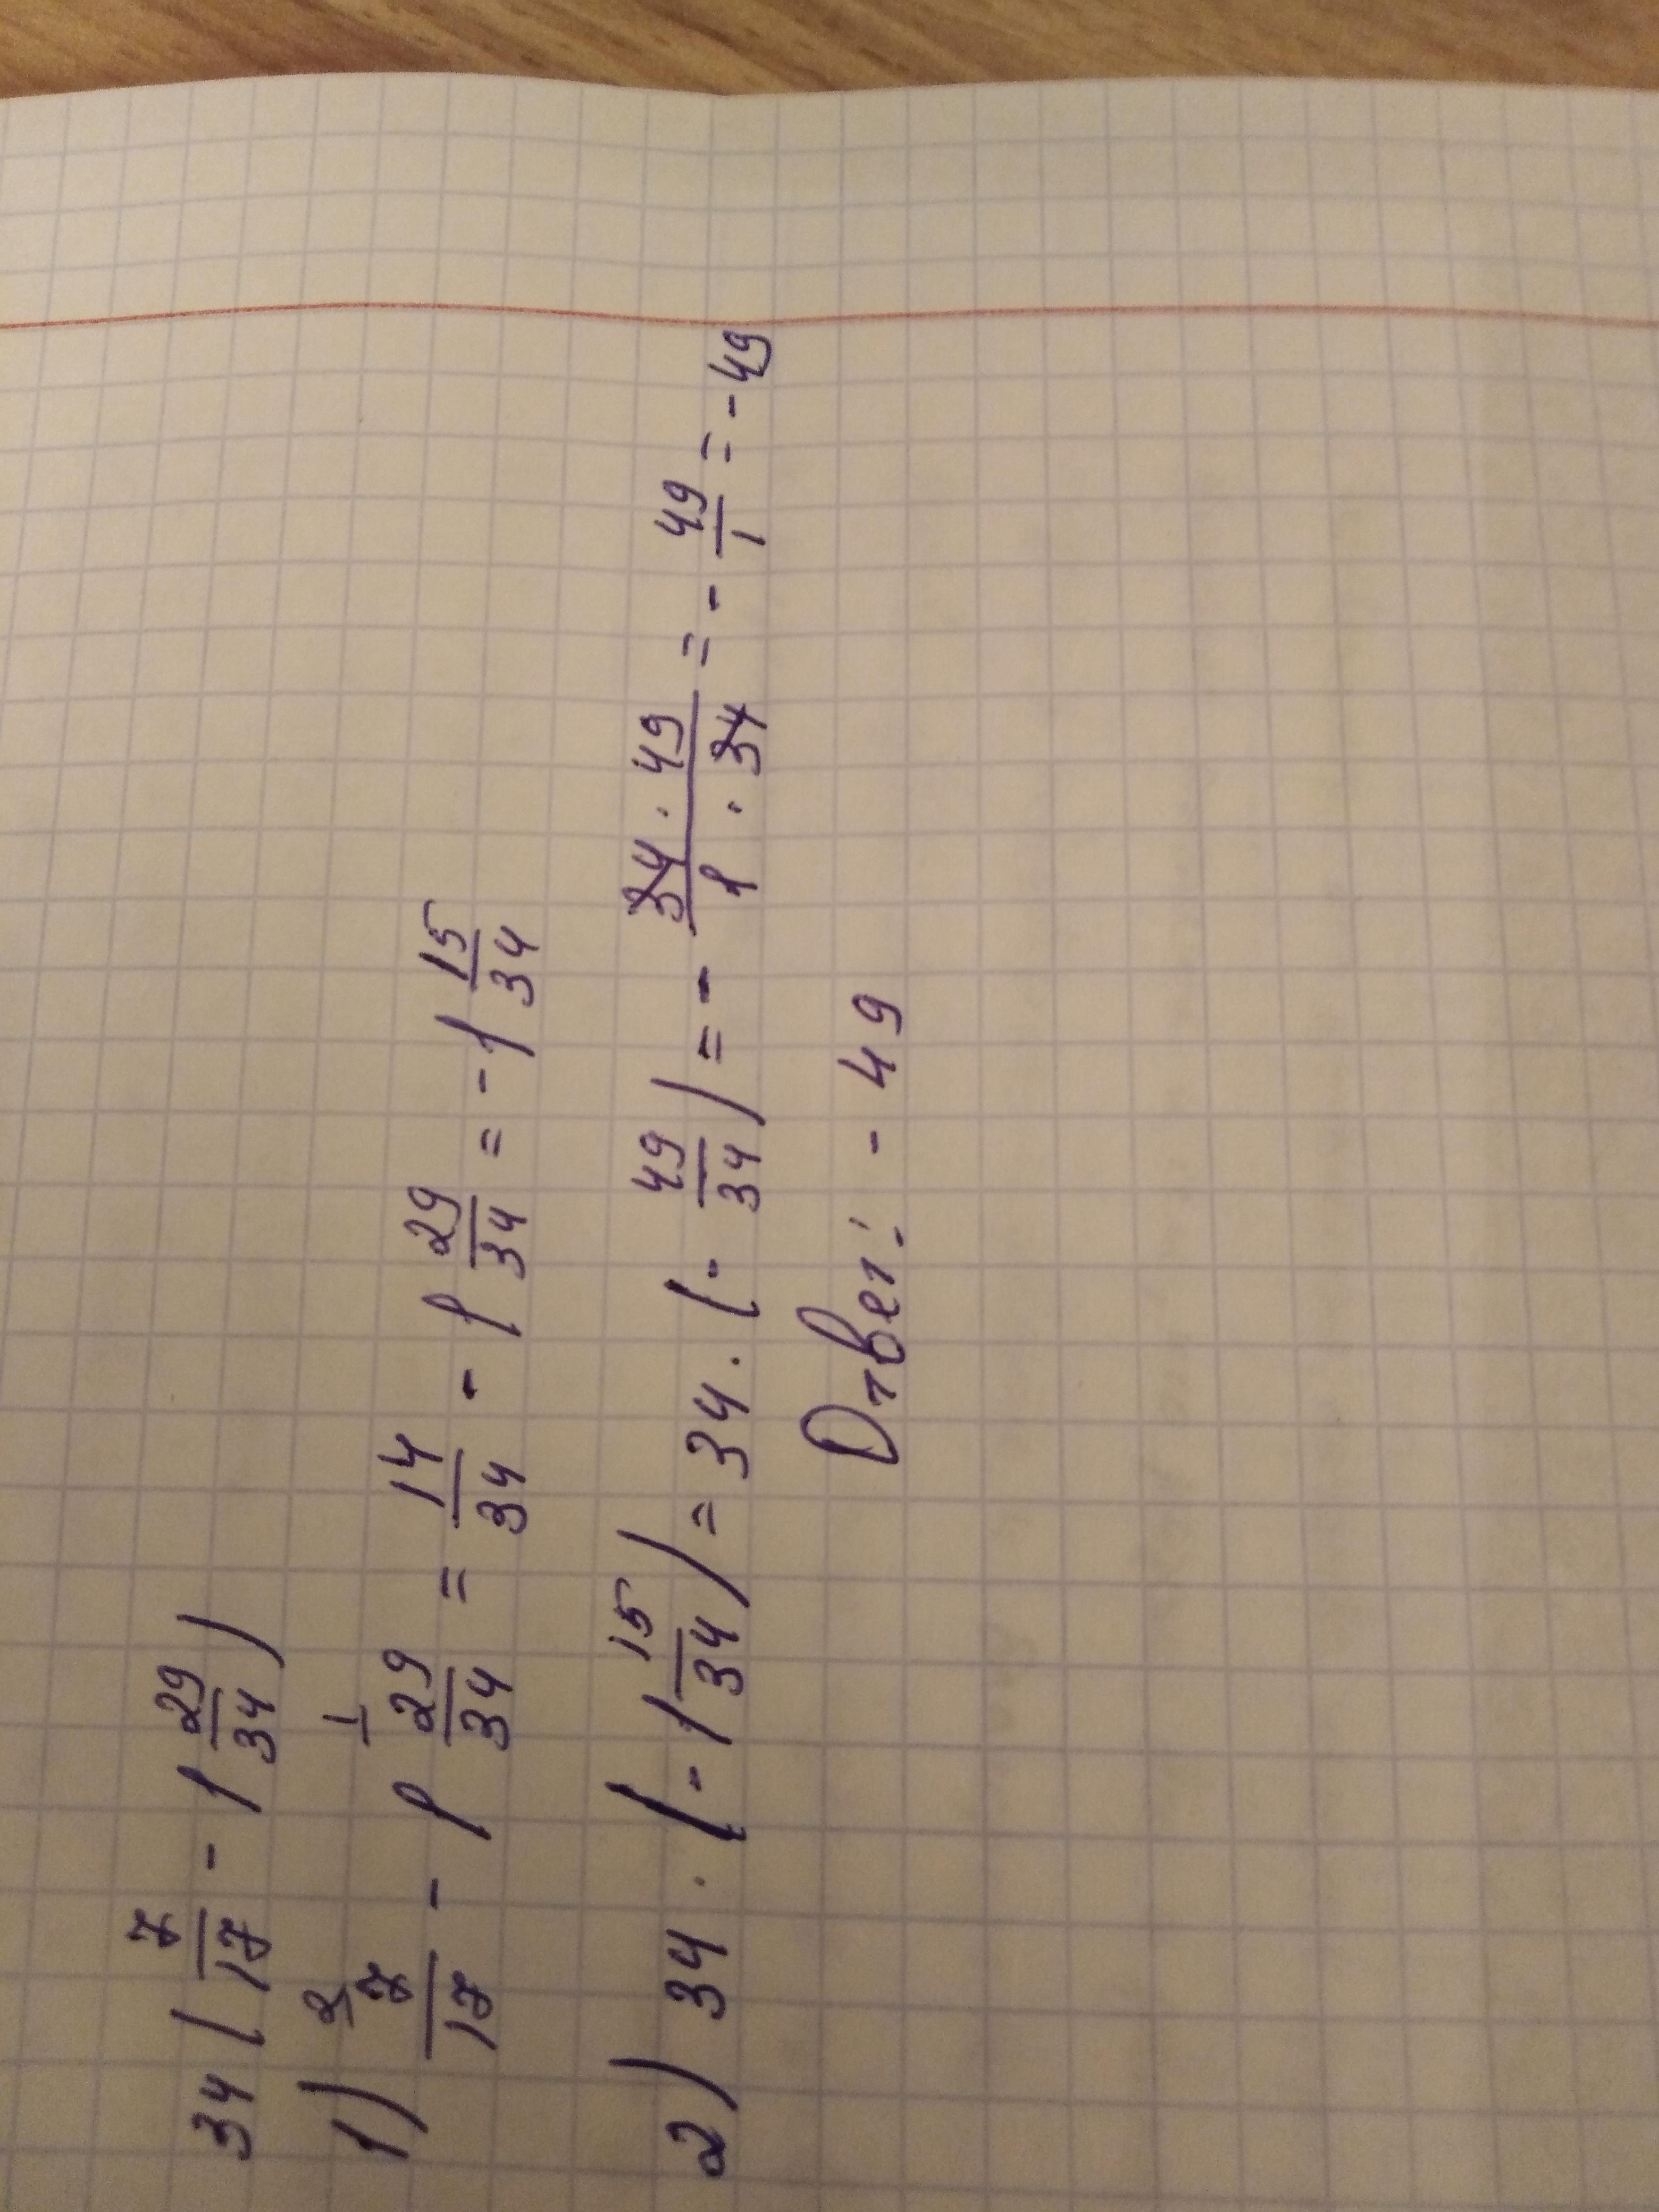 34 ( 7/17 - 1 29/34 )
1) 7/17 ² - 1 29/34 ¹ = 14/34 - 1 29/34 = - 1 15/34
2) 34 · ( - 1 15/34 ) = 34 · ( - 49/34 ) = - 34 · 49 / 1 · 34 = - 49/1 = - 49
Ответ: - 49